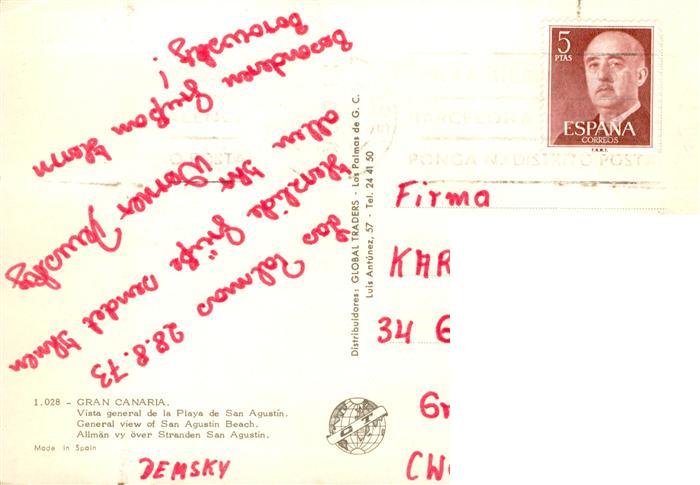 Las Palmas 28.8.73
Herzliche Grüße sendet Ihnen
allen Ihr Werner
besonderen Grußan Herrn
5
PTAS
ESPAÑA
CORREOS
F.N.M.T.
BARCELONA
PONGA N.º DISTRITO POSTAL
Firma
KAR
34 G
Gr
CW
Distribuidores: GLOBAL TRADERS - Las Palmas de G. C.
Luis Antúnez, 57 - Tel. 24 41 50
1.028 - GRAN CANARIA.
Vista general de la Playa de San Agustín.
General view of San Agustin Beach.
Allmän vy över Stranden San Agustin.
Made in Spain
DEMSKY